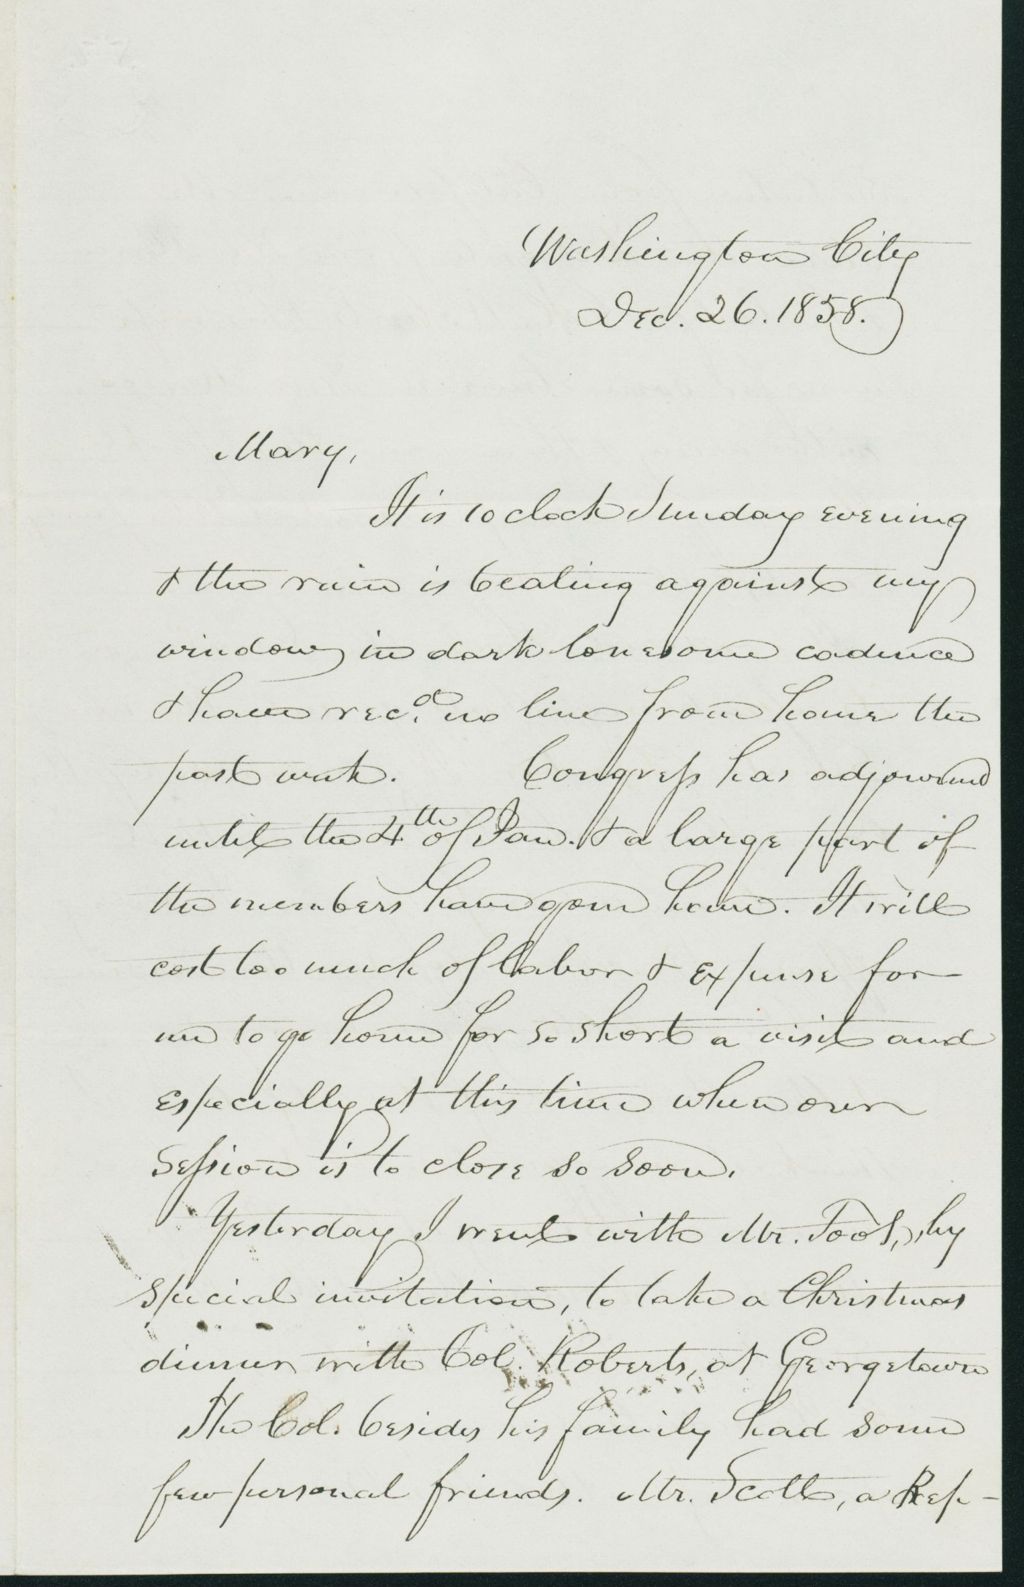 Washington City
Dec. 26. 1858.
Mary,
It is 10 oclock Sunday evening
& the rain is beating against my
window in dark lonesome cadence
& have recd. no line from home the
past week. Congress has adjourned
until the 4th of Jan. & a large part of
the members have gone home. It will
cost too much of labor & expense for
me to go home for so short a visit and
especially at this time when our
session is to close so soon.
Yesterday I went with Mr. Foot, by
special invitation, to take a Christmas
dinner with Col. Roberts, at Georgetown
The Col. besides his family had some
few personal friends. Mr. Scott, a Rep-